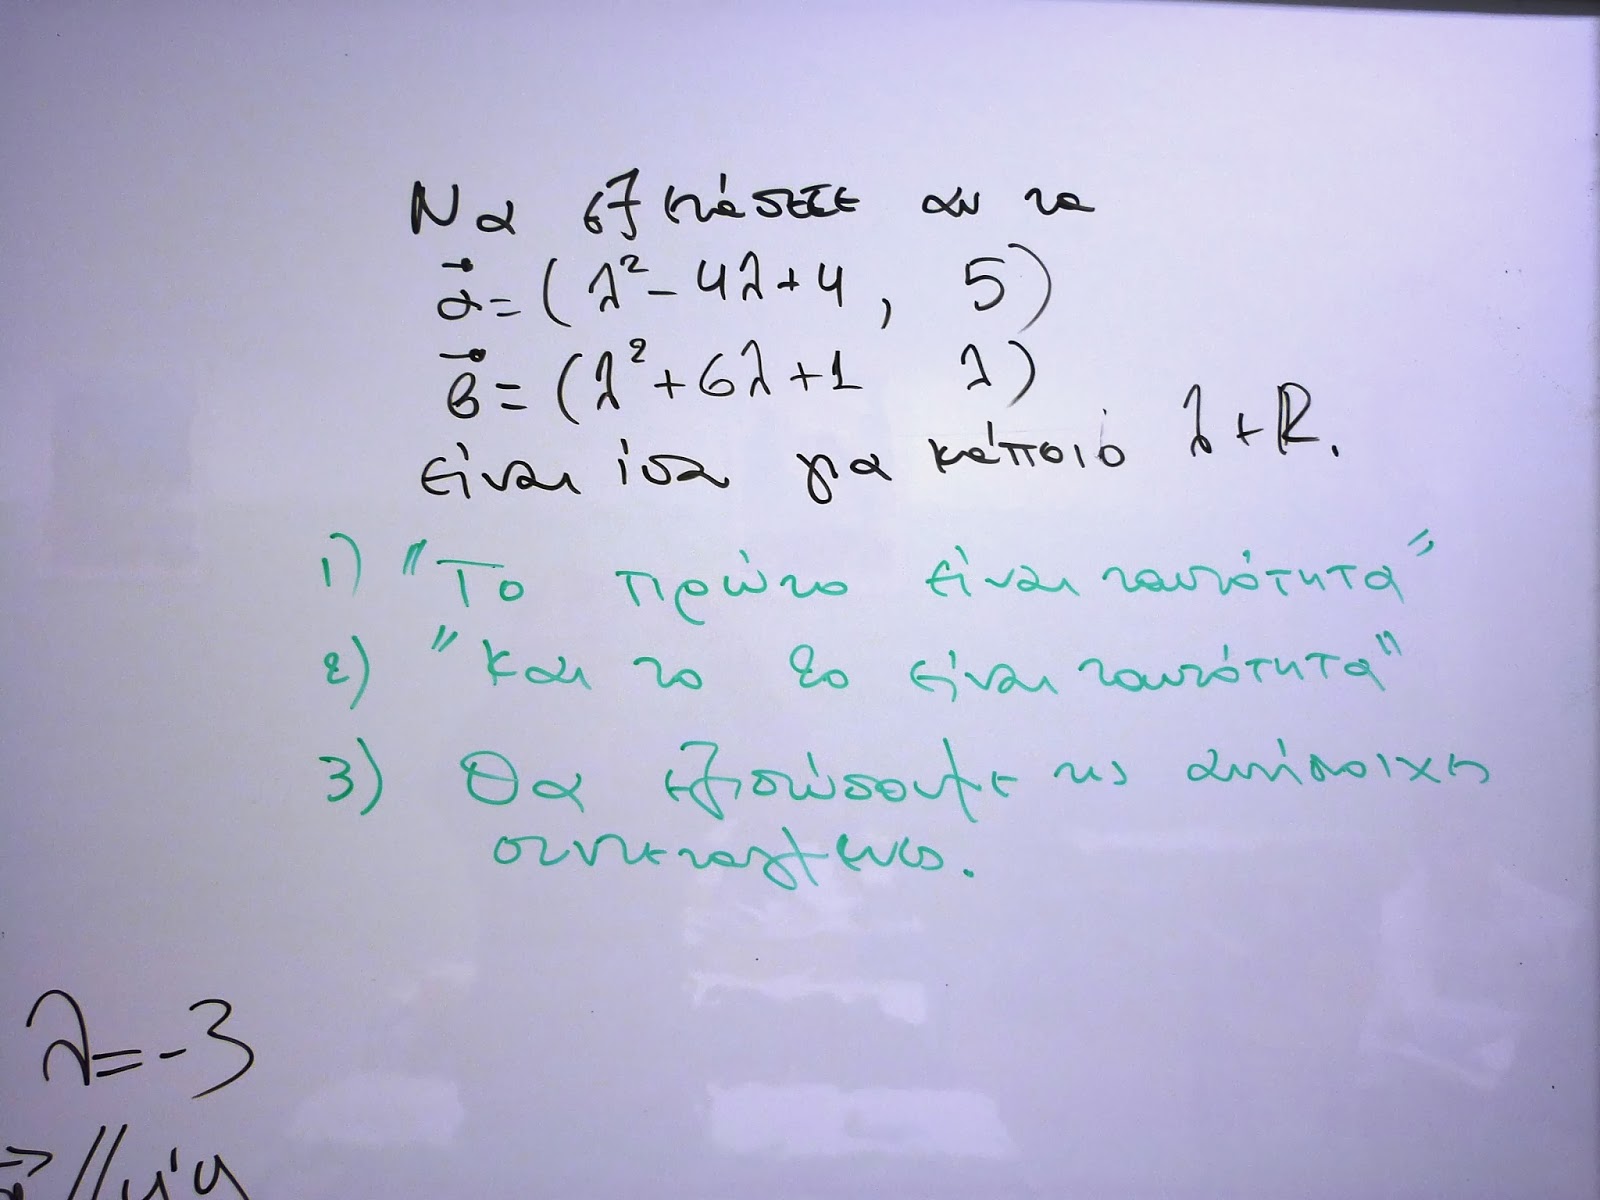 Να εξετάσετε αν τα
α⃗ = (λ² - 4λ + 4 , 5)
β⃗ = (λ² + 6λ + 1 λ)
είναι ίσα για κάποιο λ ∈ R.
1) "Το πρώτο είναι ταυτότητα"
2) "και το 2ο είναι ταυτότητα"
3) Θα εξισώσουμε τις αντίστοιχες
συντεταγμένες.
λ = -3